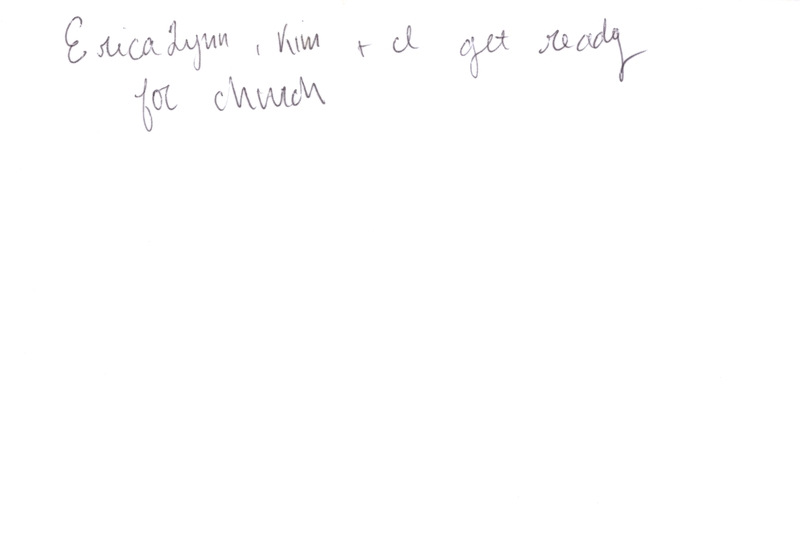 EricaLynn, Kim + I get ready
for church